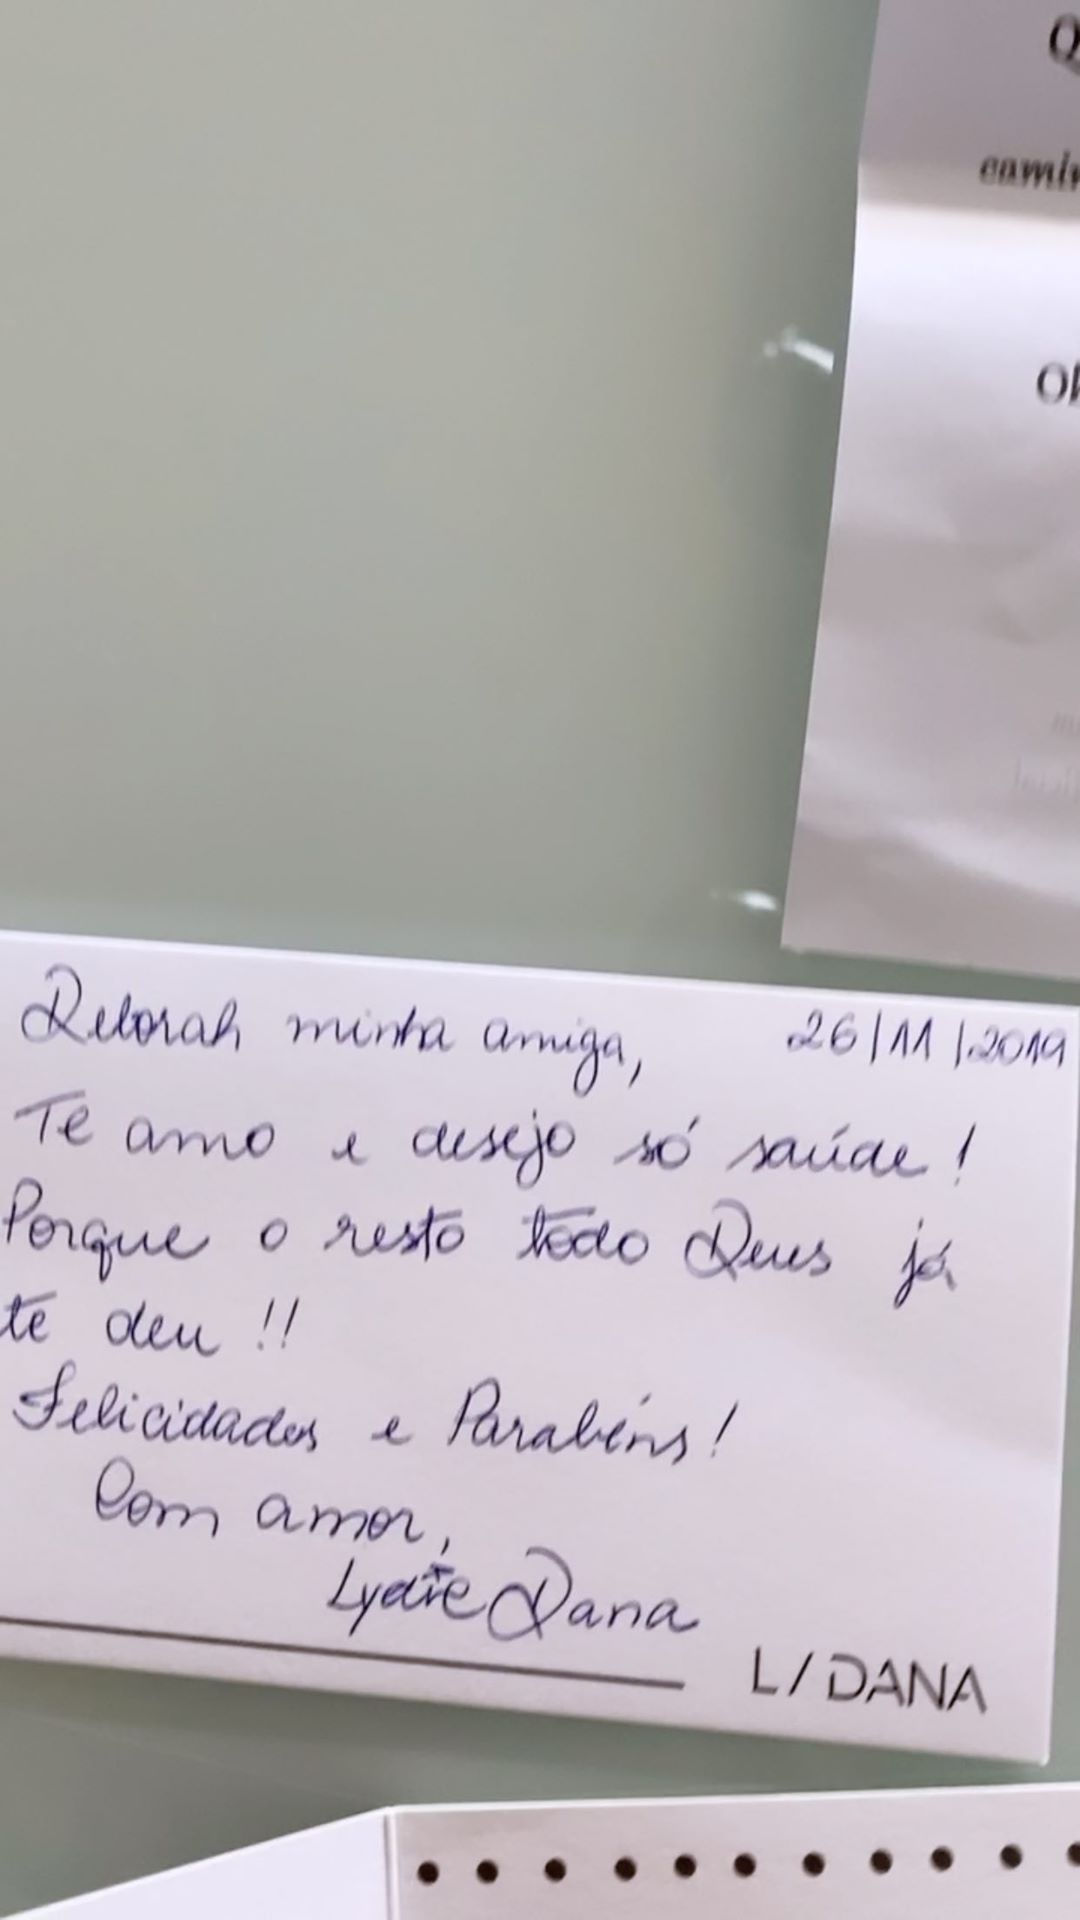 Q
OR
Deborah minha amiga, 26/11/2019
Te amo e desejo só saúde!
Porque o resto todo Deus já
te deu!!
Felicidades e Parabéns!
Com amor,
Lydie Dana
L/DANA